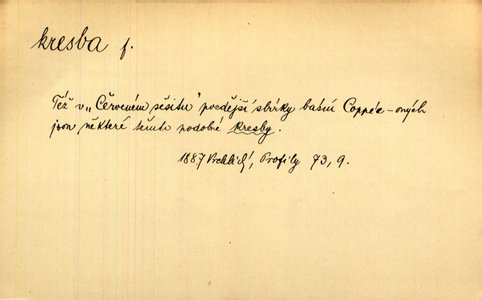 kresba f.
Též v „Červeném sešitu" pozdější sbírky básní Coppée-ových
jsou některé těmto podobné kresby.
1887 Vrchlický, Profily 73, 9.